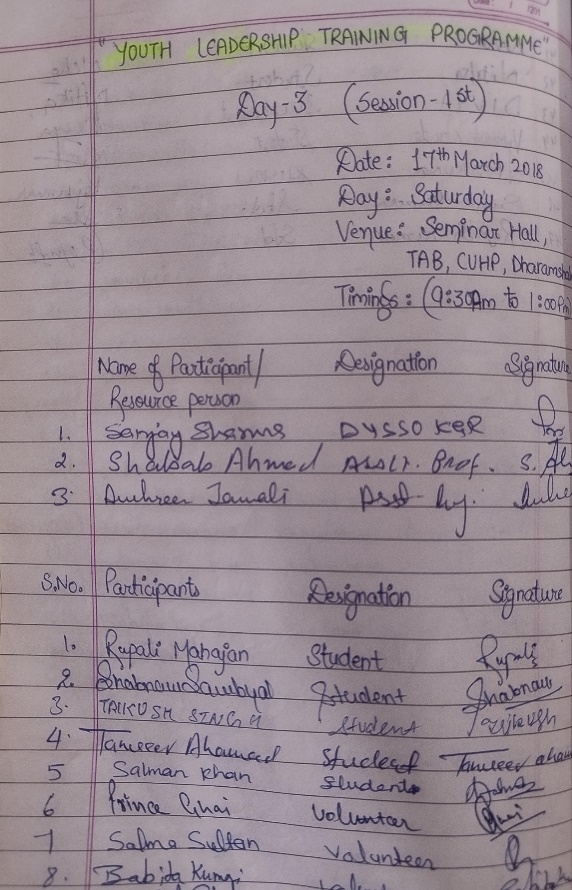 "YOUTH LEADERSHIP TRAINING PROGRAMME"
Day-3 (Session-1st)
Date: 17th March 2018
Day: Saturday
Venue: Seminar Hall,
TAB, CUHP, Dharamsha
Timings: (9:30Am to 1:00Pm
Name of Participant/ Designation Signature
Resource person
1. Sanjay Sharma DYSSO KGR
2. Shabab Ahmed Asstt. Prof. S. Ah
3. Jamali Asst
S.No. Participants Designation Signature
1. Rupali Mahajan Student Rupali
2. Shabnam Sambyal Student Shabnam
3. SINGH Student
4. Tanveer Ahamad Student Tanveer aham
5 Salman Khan Student
6 Prince Ghai Volunter Ghai
7 Salma Sultan Valunteer
8. Babida Kumari